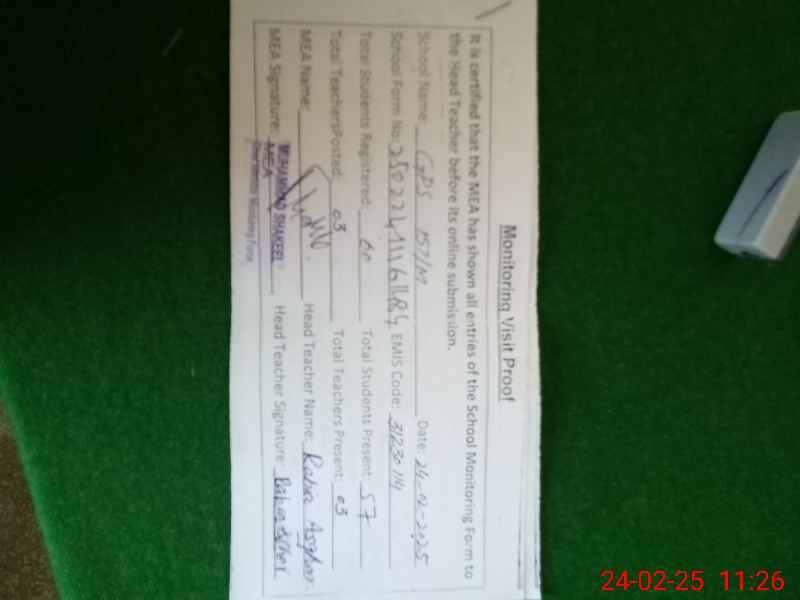 Monitoring Visit Proof
It is certified that the MEA has shown all entries of the School Monitoring Form to
the Head Teacher before its online submission.
School Name: GPS 157/M Date: 24-02-2025
School Form No: EMIS Code: 31230114
Total Students Registered: Total Students Present: 57
Total TeachersPosted: 03 Total Teachers Present: 03
MEA Name: Head Teacher Name: Rabia Asghar
MEA Signature: MUHAMMAD SHAKEEL Head Teacher Signature:
MEA
Monitoring Force
24-02-25 11:26